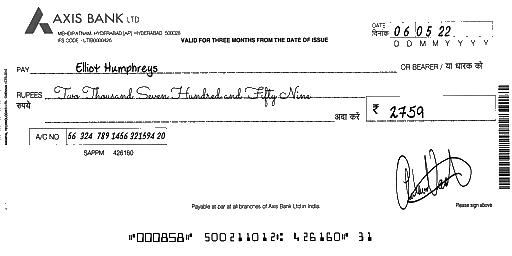 AXIS BANK LTD
MEHDIPATNAM, HYDERABAD [AP] HYDERABAD 500028
IFS CODE - UTIB0000426
VALID FOR THREE MONTHS FROM THE DATE OF ISSUE
DATE
दिनांक 06 05 22
D D M M Y Y Y Y
PAY Elliot Humphreys OR BEARER / या धारक को
RUPEES Two Thousand Seven Hundred and Fifty Nine
रुपये
अदा करें ₹ 2759
A/C NO 56 324 789 1456 321594 20
SAPPM 426160
Payable at par at all branches of Axis Bank Ltd in India.
Please sign above
⑈000858⑈ 500211012⑆ 426160⑈ 31